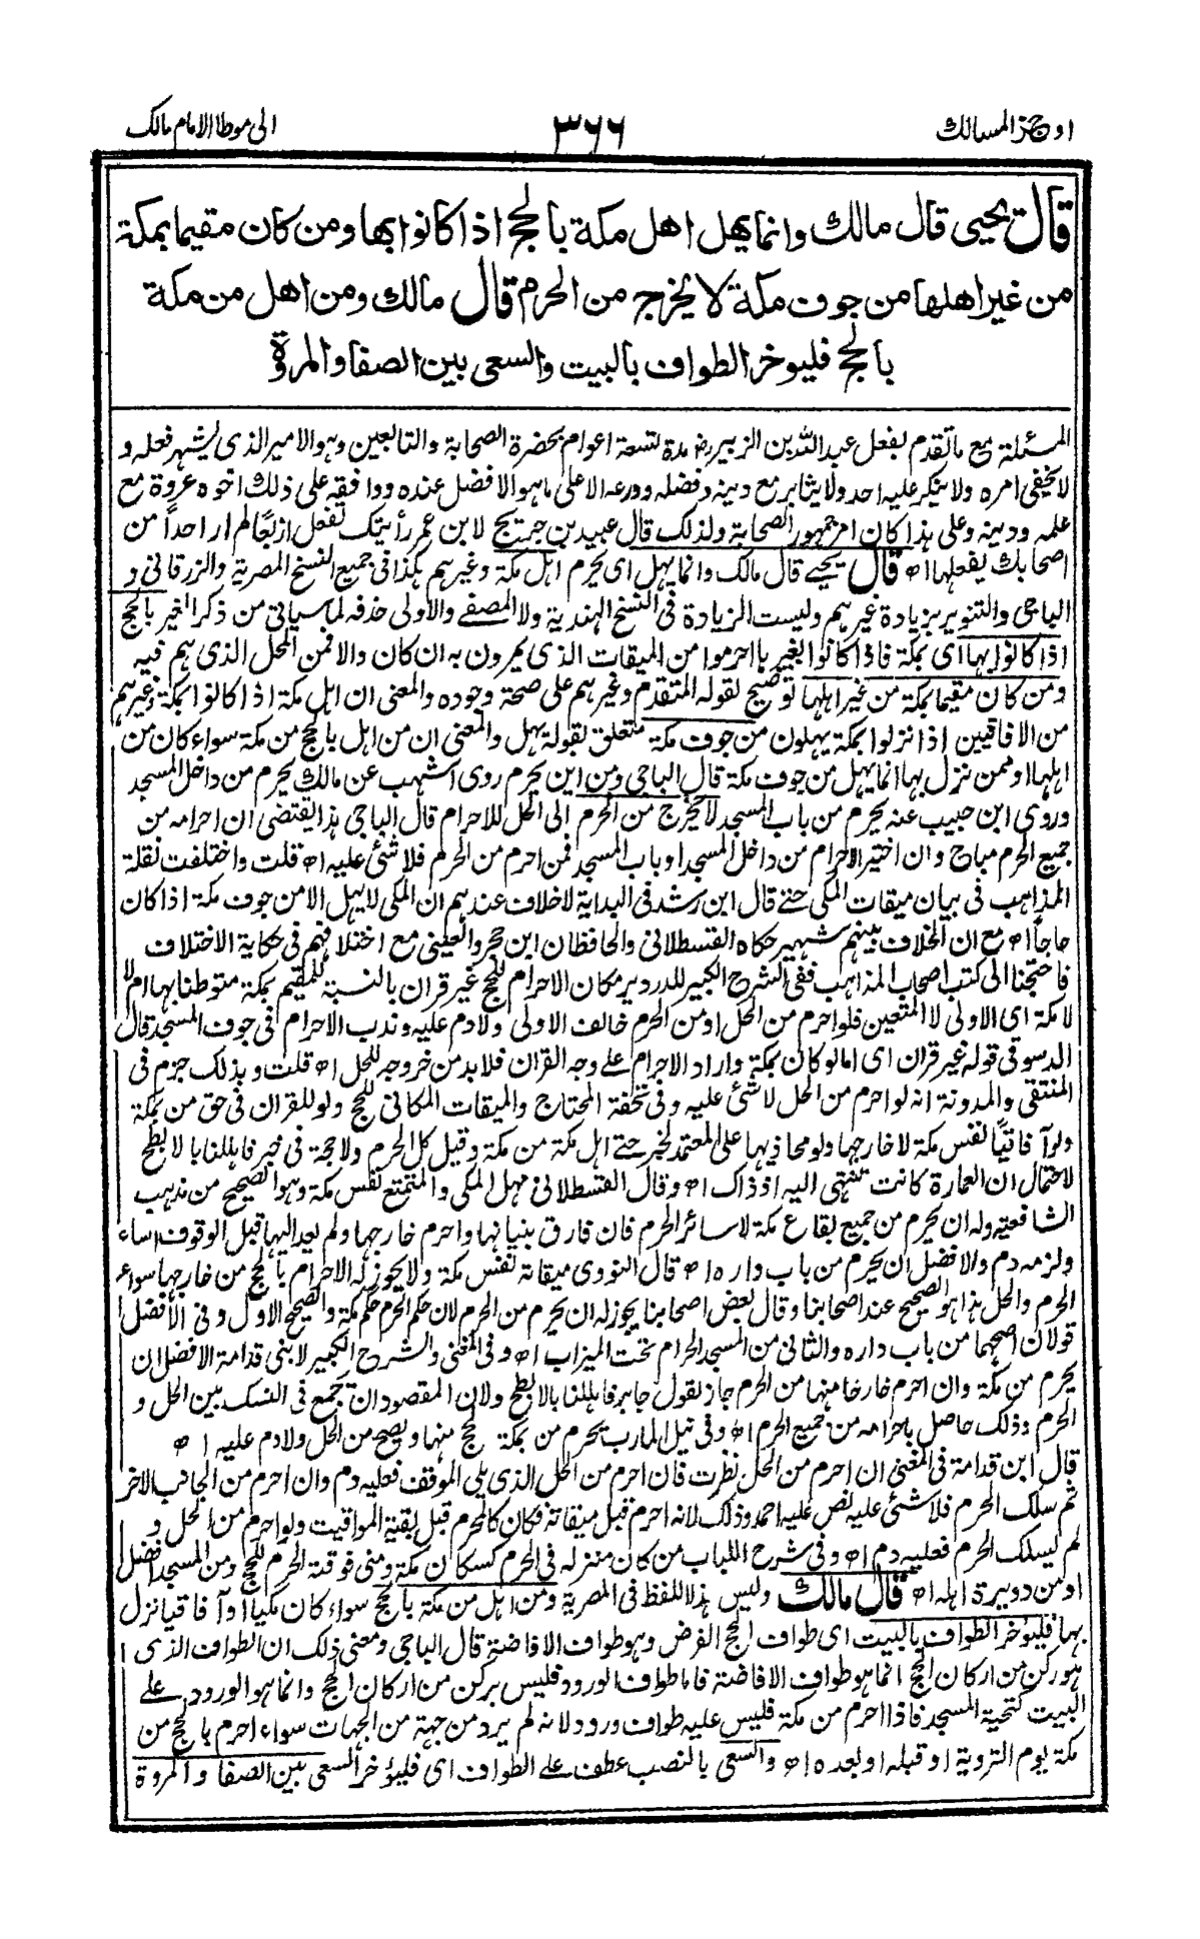 اوجز المسالك ٣٦٦ الى موطا الامام مالك
قال يحيى قال مالك وانما يهل اهل مكة بالحج اذا كانوا بها ومن كان مقيما بمكة
من غير اهلها من جوف مكة لا يخرج من الحرم قال مالك ومن اهل من مكة
بالحج فليوخر الطواف بالبيت والسعى بين الصفا والمروة
المسئلة مع ما تقدم لفعل عبد الله بن الزبير رض مدة لتسعة اعوام بحضرة الصحابة والتابعين وهو الامير الذى يشهر فعله و
لا يخفى امره ولا ينكر عليه احد ولا يثابر مع دينه وفضله وورعه الا على ما هو الافضل عنده ووافقه على ذلك اخوه عروة مع
علمه ودينه وعلى هذا كان امر جمهور الصحابة ولذلك قال عبيد بن جريج لابن عمر رأيتك تفعل اربعًا لم ار احداً من
اصحابك يفعلها اھ قال يحيے قال مالك وانما يهل اى يحرم اهل مكة وغيرهم هكذا فى جميع النسخ المصرية والزرقانى و
الباجى والتنوير بزيادة غيرهم وليست الزيادة فى النسخ الهندية ولا المصفے والاولى حذفه لما سياتى من ذكر الغير بالحج
اذا كانوا بها اى بمكة فاذا كانوا بغيرها احرموا من الميقات الذى يمرون به ان كان والا فمن المحل الذى هم فيه
ومن كان مقيما بمكة من غير اهلها توضيح لقوله المتقدم وغيرهم على صحة وجوده والمعنى ان اهل مكة اذا كانوا بمكة وغيرهم
من الافاقيين اذا نزلوا بمكة يهلون من جوف مكة متعلق بقوله يهل والمعنى ان من اهل بالحج من مكة سواء كان من
اهلها او ممن نزل بها انما يهل من جوف مكة قال الباجى ومن اين يحرم روى اشهب عن مالك يحرم من داخل المسجد
وروى ابن حبيب عنه يحرم من باب المسجد لا يخرج من الحرم الى الحل للاحرام قال الباجى هذا يقتضى ان احرامه من
جميع الحرم مباح وان اختير الاحرام من داخل المسجد او باب المسجد فمن احرم من الحرم فلا شئ عليه اھ قلت واختلفت نقلة
المذاهب فى بيان ميقات المكى حتے قال ابن رشد فى البداية لا خلاف عندهم ان المكى لا يهل الا من جوف مكة اذا كان
حاجاً اھ مع ان الخلاف بينهم شهير حكاه القسطلانى والحافظان ابن حجر والعينى مع اختلافهم فى حكاية الاختلاف
فاحتجنا الى كتب اصحاب المذاهب ففى الشرح الكبير للدردير مكان الاحرام للحج غير قران بالنسبة للمقيم بمكة متوطنا بها ام لا
لا مكة اى الاولى لا المتعين فلو احرم من الحل او من الحرم خالف الاولى ولا دم عليه وندب الاحرام فى جوف المسجد قال
الدسوقى قوله غير قران اى اما لو كان بمكة واراد الاحرام علے وجه القران فلا بد من خروجه للحل اھ قلت وبذلك جزم فى
المنتقى والمدونة انه لو احرم من الحل لا شئ عليه وفى تحفة المحتاج والميقات المكانى للحج ولو للقران فى حق من بمكة
ولو آفاقياً نفس مكة لا خارجها ولو محاذيها على المعتمد لخبر حتے اهل مكة من مكة وقيل كل الحرم ولا حجة فى خبر فاهللنا بالابطح
لاحتمال ان العمارة كانت تنتهى اليه اذ ذاك اھ وقال القسطلانى مهل المكى والمتمتع نفس مكة وهو الصحيح من مذهب
الشافعية وله ان يحرم من جميع بقاع مكة لا سائر الحرم فان فارق بنيانها واحرم خارجها ولم يعد اليها قبل الوقوف اساء
ولزمه دم والافضل ان يحرم من باب داره اھ قال النووى ميقاته نفس مكة ولا يجوز له الاحرام بالحج من خارجها سواء
الحرم والحل هذا هو الصحيح عند اصحابنا وقال بعض اصحابنا يجوز له ان يحرم من الحرم لان حكم الحرم حكم مكة والصحيح الاول وفى الافضل
قولان اصحهما من باب داره والثانى من المسجد الحرام تحت الميزاب اھ وفى المغنى والشرح الكبير لابنى قدامة الافضل ان
يحرم من مكة وان احرم خارخا منها من الحرم جاز لقول جابر فاهللنا بالابطح ولان المقصود ان يجمع فى النسك بين الحل و
الحرم وذلك حاصل باحرامه من جميع الحرم اھ وفى نيل المارب يحرم من بمكة لحج منها ويصح من الحل ولا دم عليه اھ
قال ابن قدامة فى المغنى ان احرم من الحل نظرت فان احرم من الحل الذى يلى الموقف فعليه دم وان احرم من الجانب الاخر
ثم سلك الحرم فلا شئ عليه نص عليه احمد وذلك لانه احرم قبل ميقاته فكان كالمحرم قبل بقية المواقيت ولو احرم من الحل و
لم يسلك الحرم فعليه دم اھ وفى شرح اللباب من كان منزله فى الحرم كسكان مكة ومنى فوقته الحرم للحج ومن المسجد افضل
او من دويرة اهله اھ قال مالك وليس هذا اللفظ فى المصرية ومن اهل من مكة بالحج سواء كان مكيا او آفاقيا نزل
بها فليؤخر الطواف بالبيت اى طواف الحج الفرض وهو طواف الافاضة قال الباجى ومعنى ذلك ان الطواف الذى
هو ركن من اركان الحج انما هو طواف الافاضة فاما طواف الورود فليس بركن من اركان الحج وانما هو الورود علے
البيت كتحية المسجد فاذا احرم من مكة فليس عليه طواف ورود لانه لم يرد من جهة من الجهات سواء احرم بالحج من
مكة يوم التروية او قبله او بعده اھ والسعى بالنصب عطف علے الطواف اى فليؤخر السعى بين الصفا والمروة